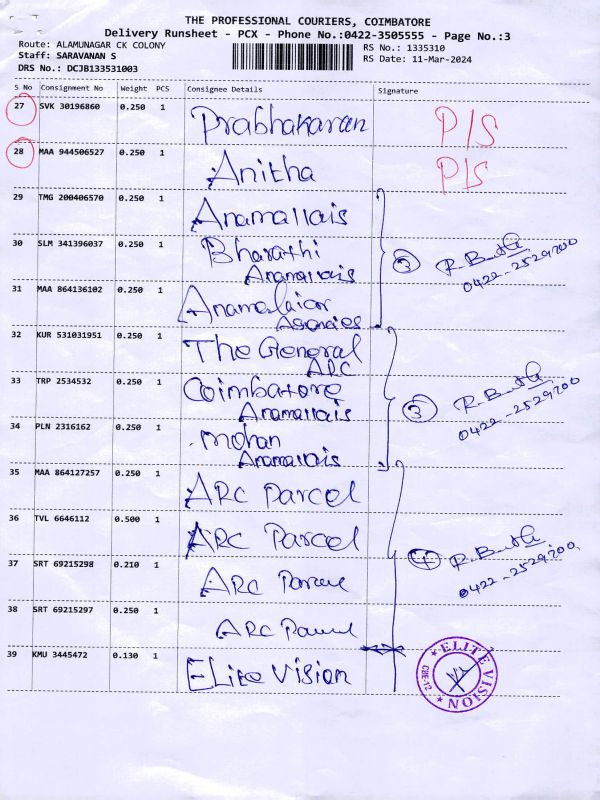 THE PROFESSIONAL COURIERS, COIMBATORE
Delivery Runsheet - PCX - Phone No.:0422-3505555 - Page No.:3
Route: ALAMUNAGAR CK COLONY
RS No.: 1335310
Staff: SARAVANAN S
RS Date: 11-Mar-2024
DRS No.: DCJB133531003
S No Consignment No Weight PCS Consignee Details Signature
27 SVK 30196860 0.250 1 Prabhakaran P/S
28 MAA 944506527 0.250 1 Anitha P/S
29 TMG 200406570 0.250 1 Anamallais
30 SLM 341396037 0.250 1 Bharathi
Anamallais
3
0422-2529200
31 MAA 864136102 0.250 1 Anamalaiar
Agencies
32 KUR 531031951 0.250 1 The General
ARC
33 TRP 2534532 0.250 1 Coimbatore
Anamallais
3
0422-2529200
34 PLN 2316162 0.250 1 Mohan
Anamallais
35 MAA 864127257 0.250 1 ARC Parcel
36 TVL 6646112 0.500 1 ARC Parcel
4
0422-2529200
37 SRT 69215298 0.210 1 ARC Parcel
38 SRT 69215297 0.250 1 ARC Parcel
39 KMU 3445472 0.130 1 Elite Vision
ELITE VISION